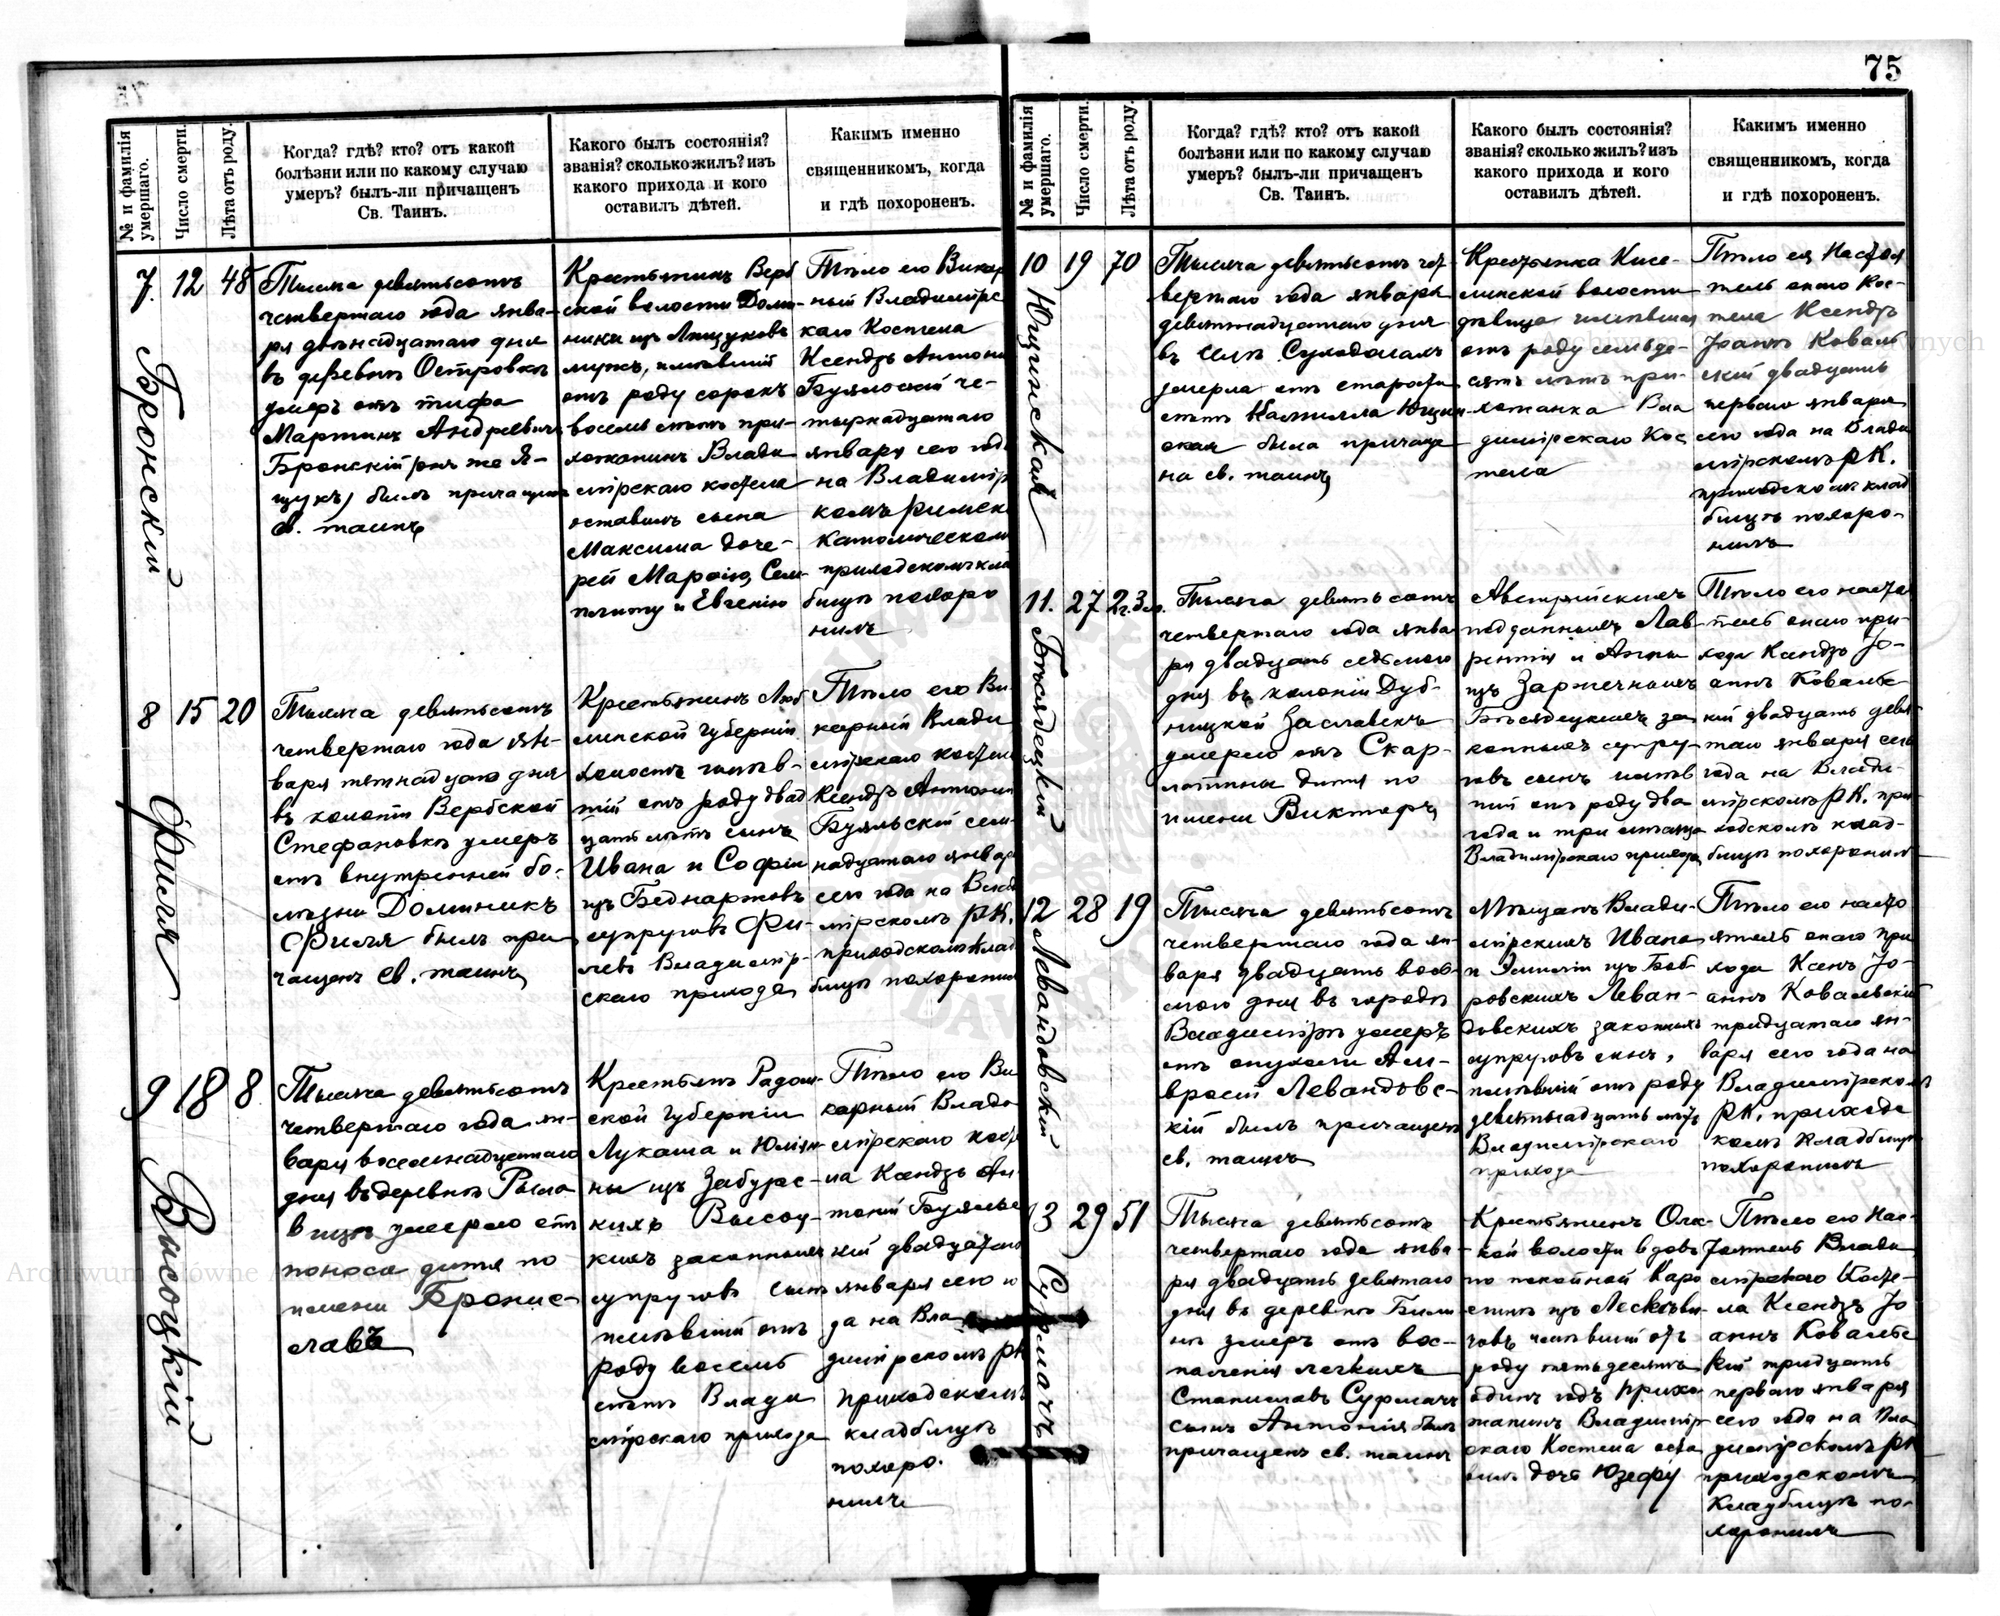 75
№ и фамилія умершаго.
Число смерти.
Лѣта отъ роду.
Когда? гдѣ? кто? отъ какой
болѣзни или по какому случаю
умеръ? былъ-ли причащенъ
Св. Таинъ.
Какого былъ состоянія?
званія? сколько жилъ? изъ
какого прихода и кого
оставилъ дѣтей.
Какимъ именно
священникомъ, когда
и гдѣ похороненъ.
7. 12 48
Бронскій
Тысяча девятьсотъ
четвертаго года янва-
ря двѣнадцатаго дня
въ деревнѣ Островкѣ
умеръ отъ тифа
Мартинъ Андреевичъ
Бронскій (онъ же Я-
щукъ) былъ причащенъ
св. таинъ
Крестьянинъ Верб
ской волости Доми-
ники изъ Лищуковъ
мужъ, имѣвшій
отъ роду сорокъ
восемь лѣтъ при-
хожанинъ Влади
мірскаго костела
оставилъ сына
Максима доче-
рей Марію, Сем-
и Евгенію
Тѣло его Викар
ный Владимірс
каго Костела
Ксендзъ Антоній
Буяльскій че-
тырнадцатаго
января сего года
на Владимір
комъ Римско
Католическом
приходскомъ кла
бищѣ похоро
нилъ
8 15 20
Филя
Тысяча девятьсотъ
четвертаго года ян-
варя пятнадцатаго дня
въ колоніи Вербской
Стефановкѣ умеръ
отъ внутренней бо-
лѣзни Доминикъ
Филя былъ при
чащенъ св. таинъ
Крестьянинъ Люб
линской губерніи
холостъ имѣв-
шій отъ роду двад
цать лѣтъ сынъ
Ивана и Софіи
изъ Беднартовъ
супруговъ Фи-
левъ Владимір-
скаго прихода
Тѣло его Ви-
карный Влади
мірскаго костела
Ксендзъ Антоній
Буяльскій сем-
надцатаго января
сего года на Влад
мірскомъ РК.
приходскомъ клад
бищѣ похоронилъ
9 18 8
Высоцкій
Тысяча девятьсотъ
четвертаго года ян-
варя восемнадцатаго
дня въ деревнѣ Рыло
вицѣ умерло отъ
поноса дитя по
имени Бронис-
лавъ
Крестьянъ Радом-
ской губерніи
Лукаша и Юлян-
ны изъ Забурс-
кихъ Высоц-
кихъ законныхъ
супруговъ сынъ
имѣвшій отъ
роду восемь
лѣтъ Влади
мірскаго прихода
Тѣло его Ви
карный Влади
мірскаго косте
ла Ксендзъ Ан-
тоній Буяльс
кій двадцатаго
января сего го
да на Вла
димірскомъ РК
приходскомъ
кладбищѣ
похоро-
нилъ
10 19 70
Ющинская
Тысяча девятьсотъ чет-
вертаго года января
девятнадцатаго дня
въ селѣ Суходолахъ
умерла отъ старости
лѣтъ Камилла Ющин
ская была причаще
на св. таинъ
Крестьянка Кисе-
линской волости
дѣвица имѣвшая
отъ роду семьде-
сятъ лѣтъ при-
хожанка Вла
димірскаго Кос
тела
Тѣло ея Настоя
тель онаго Кос-
тела Ксендзъ
Іоаннъ Коваль
скій двадцать
перваго января
сего года на Влади
мірскомъ РК.
приходскомъ клад
бищѣ похоро-
нилъ
11. 27 2г.3м.
Бѣсядецкій
Тысяча девятьсотъ
четвертаго года янва
ря двадцать седьмого
дня въ колоніи Дуб-
ницкой Заславскъ
умерло отъ Скар-
латины дитя по
имени Викторъ
Австрійскихъ
подданныхъ Лав-
рентія и Анны
изъ Заржечныхъ
Бѣсядецкихъ за
конныхъ супру-
говъ сынъ имѣв
шій отъ роду два
года и три мѣсяца
Владимірскаго прихода
Тѣло его настоя
тель онаго при-
хода Ксендзъ Іо-
аннъ Ковальс-
кій двадцать девя-
таго января сего
года на Влади-
мірскомъ РК. при-
ходскомъ клад-
бищѣ похоронилъ
12 28 19
Левандовскій
Тысяча девятьсотъ
четвертаго года ян-
варя двадцать вось
мого дня въ городѣ
Владимірѣ умеръ
отъ опухоли Ам-
вросій Левандовс-
кій былъ причащенъ
св. таинъ
Мѣщанъ Влади-
мірскихъ Ивана
и Эмиліи изъ Боб-
ровскихъ Леван-
довскихъ законныхъ
супруговъ сынъ,
имѣвшій отъ роду
девятнадцать лѣтъ
Владимірскаго
прихода
Тѣло его насто
ятель онаго при
хода Ксенз Іо-
аннъ Ковальскій
тридцатаго ян-
варя сего года на
Владимірскомъ
РК. приходс
комъ Кладбищѣ
похоронилъ
13 29 51
Сурмачъ
Тысяча девятьсотъ
четвертаго года янва-
ря двадцать девятаго
дня въ деревнѣ Били
чѣ умеръ отъ вос-
паленія легкихъ
Станиславъ Сурмачъ
сынъ Антонія былъ
причащенъ св. таинъ
Крестьянинъ Олес-
кой волости вдовъ
по покойной Каро
линѣ изъ Лесковы
човъ имѣвшій отъ
роду пятьдесятъ
одинъ годъ прихо-
жанинъ Владимір-
скаго Костела оста
вилъ дочь Юзефу
Тѣло его Нас-
тоятель Влади
мірскаго Косте-
ла Ксендзъ Іо
аннъ Ковальс
кій тридцать
перваго января
сего года на Вла
димірскомъ РК
приходскомъ
Кладбищѣ по-
хоронилъ
Archiwum Główne Akt Dawnych